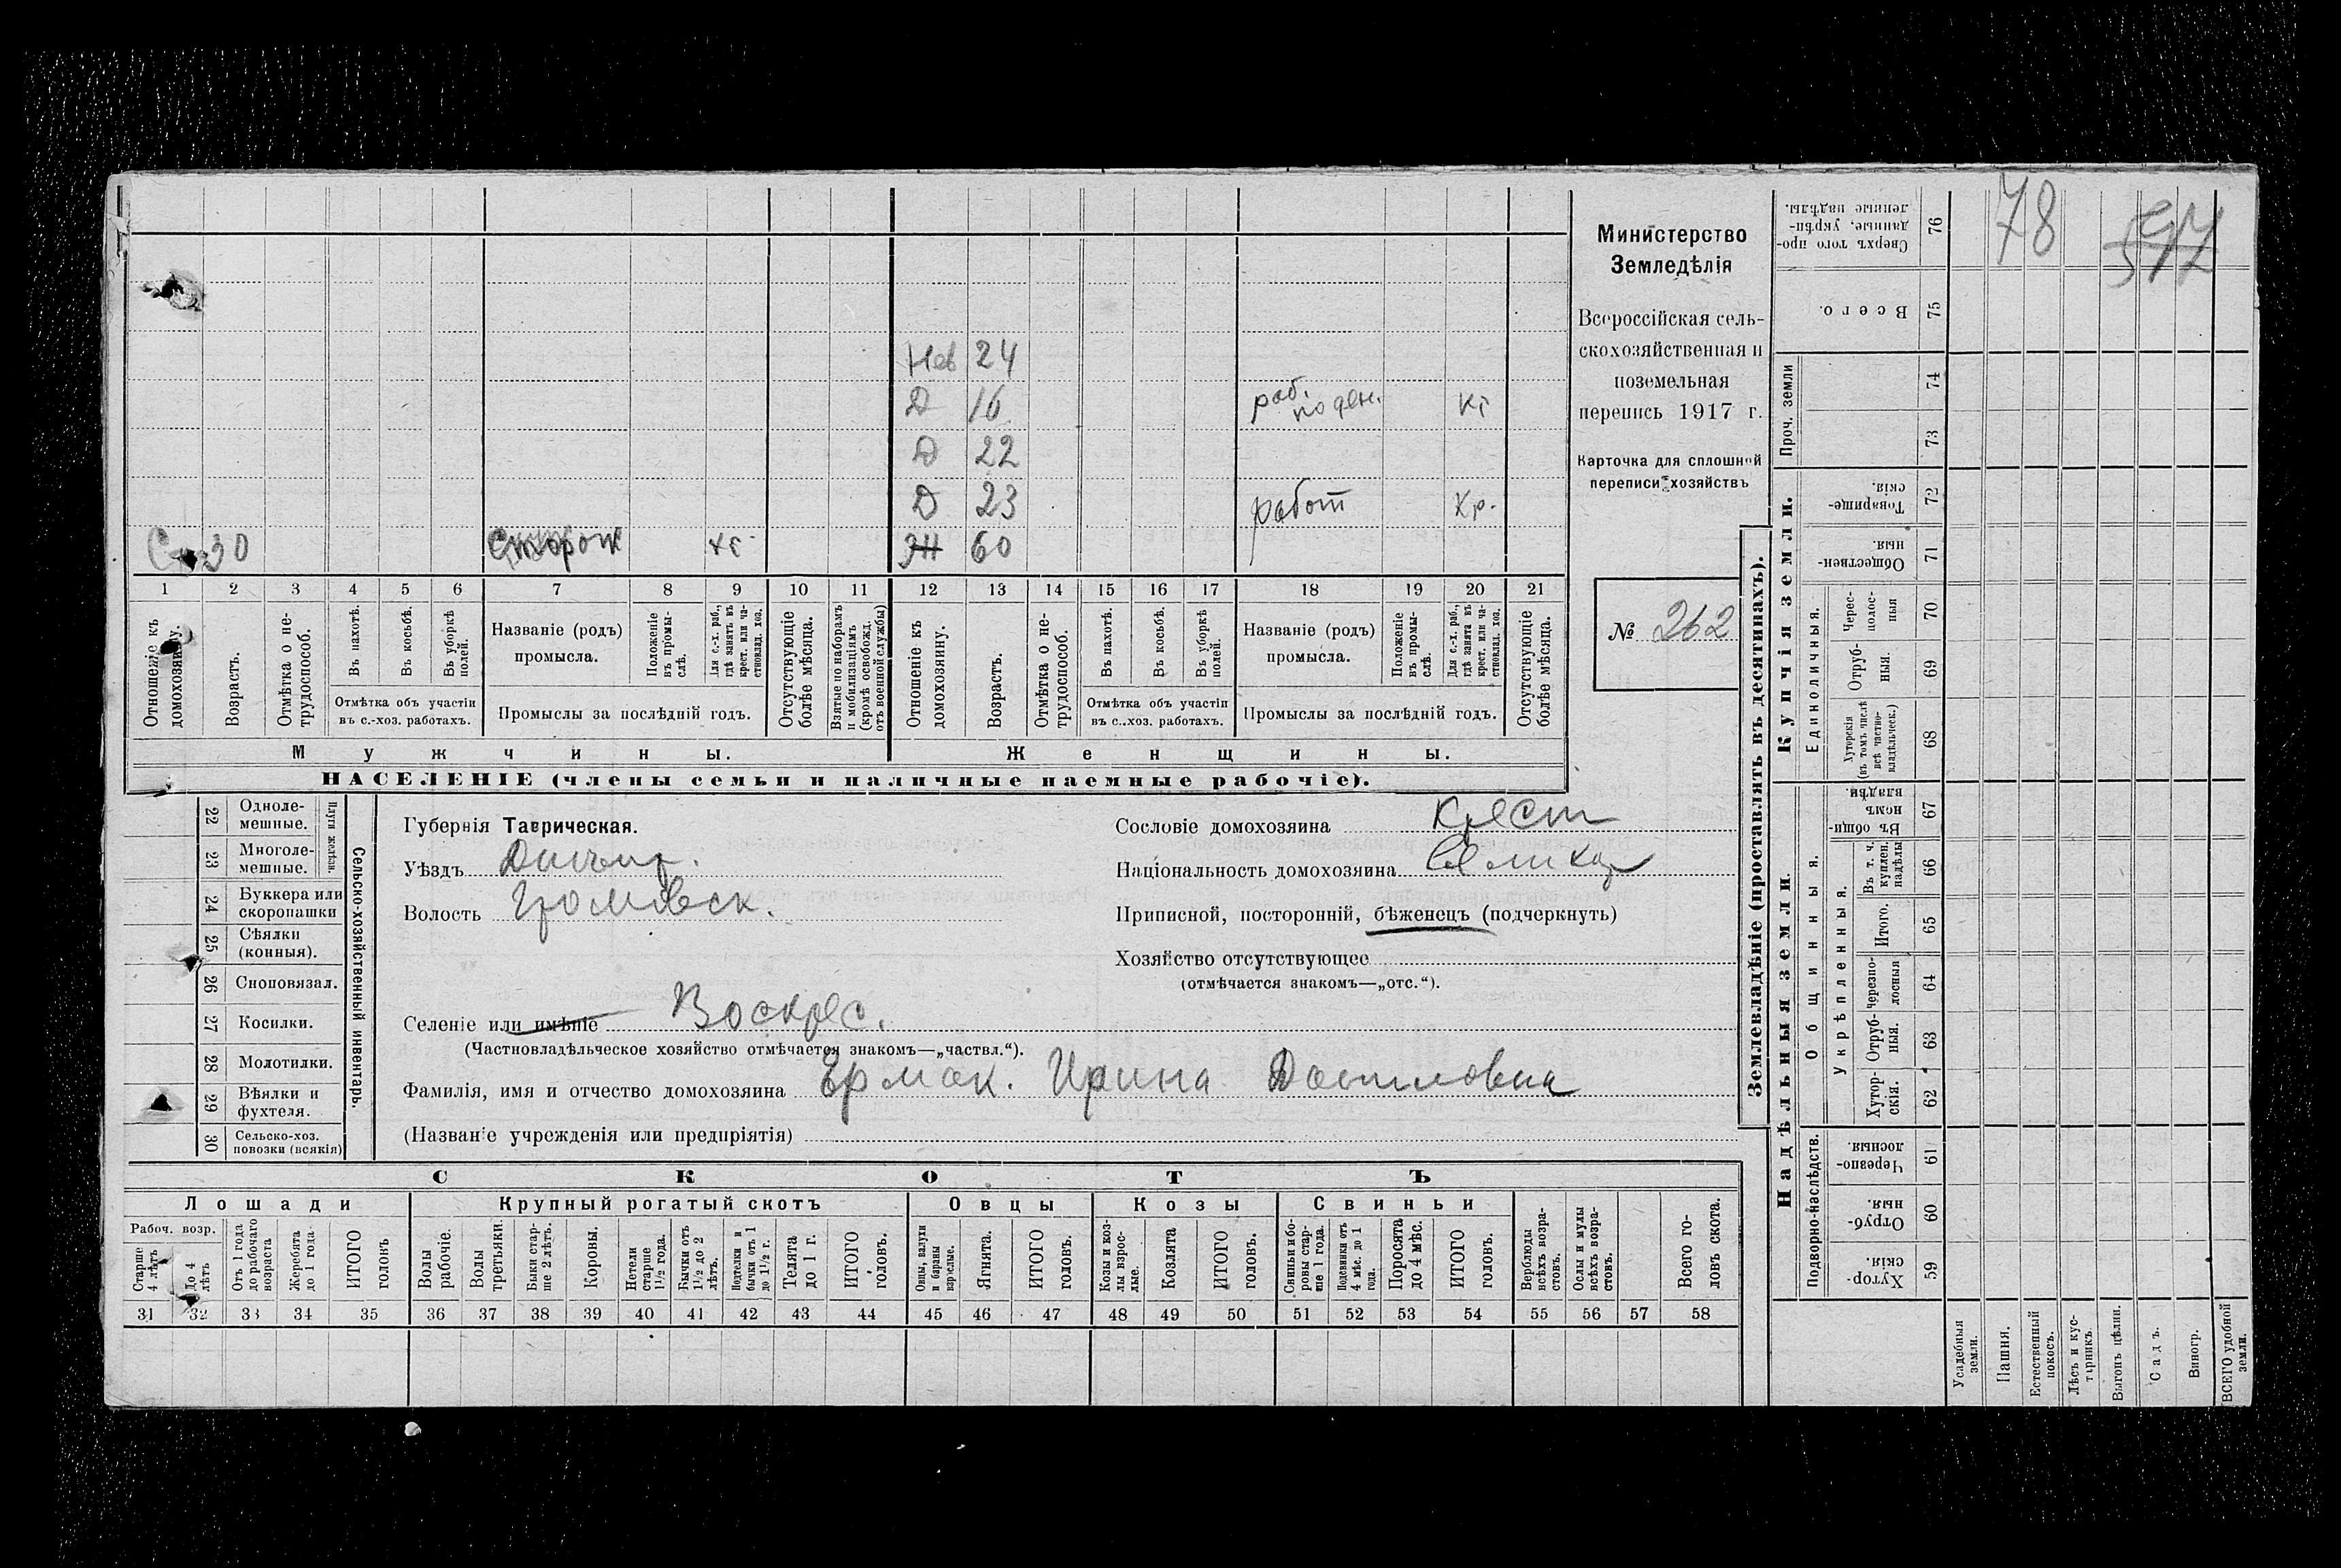 78
597
Министерство
Земледѣлія
Всероссійская сель-
скохозяйственная и
поземельная
перепись 1917 г.
Карточка для сплошной
переписи хозяйствъ
№ 262
Нев 24
Д 16 раб. поден. кг
Д 22
Д 23 работ кр.
30 Сторож
60
1 2 3 4 5 6 7 8 9 10 11 12 13 14 15 16 17 18 19 20 21
Отношеніе къ домохозяину.
Возрастъ.
Отмѣтка о не-трудоспособ.
Въ пахотѣ.
Въ косьбѣ.
Въ уборкѣ полей.
Отмѣтка объ участіи
въ с.-хоз. работахъ.
Названіе (родъ)
промысла.
Положеніе въ промы-слѣ.
Для с.-х. раб., гдѣ занятъ въ крест. или ча-стновлад. хоз.
Промыслы за послѣдній годъ.
Отсутствующіе болѣе мѣсяца.
Взятые по наборамъ и мобилизаціямъ (кромѣ освобожд. отъ военной службы)
Отношеніе къ домохозяину.
Возрастъ.
Отмѣтка о не-трудоспособ.
Въ пахотѣ.
Въ косьбѣ.
Въ уборкѣ полей.
Отмѣтка объ участіи
въ с.-хоз. работахъ.
Названіе (родъ)
промысла.
Положеніе въ промы-слѣ.
Для с.-х. раб., гдѣ занята въ крест. или ча-стновлад. хоз.
Промыслы за послѣдній годъ.
Отсутствующіе болѣе мѣсяца.
Мужчины.
Женщины.
НАСЕЛЕНІЕ (члены семьи и наличные наемные рабочіе).
Сельско-хозяйственный инвентарь.
Плуги желѣзн.
22 Одноле-мешные.
23 Многоле-мешные.
24 Буккера или скоропашки
25 Сѣялки (конныя).
26 Сноповязал.
27 Косилки.
28 Молотилки.
29 Вѣялки и фухтеля.
30 Сельско-хоз. повозки (всякія)
Губернія Таврическая.
Уѣздъ Днѣпр.
Волость Громовск.
Селеніе или имѣніе Воскрес.
(Частновладѣльческое хозяйство отмѣчается знакомъ—„частвл.“).
Фамилія, имя и отчество домохозяина Ермак. Ирина
(Названіе учрежденія или предпріятія)
Сословіе домохозяина Крест
Національность домохозяина
Приписной, посторонній, бѣженецъ (подчеркнуть)
Хозяйство отсутствующее
(отмѣчается знакомъ—„отс.“).
СКОТЪ
Лошади
Крупный рогатый скотъ
Овцы
Козы
Свиньи
Рабоч. возр.
Старше 4 лѣтъ
До 4 лѣтъ
Отъ 1 года до рабочаго возраста
Жеребята до 1 года
ИТОГО головъ
Волы рабочіе.
Волы третьяки.
Быки стар-ше 2 лѣтъ.
Коровы.
Нетели старше 1½ года.
Бычки отъ 1½ до 2 лѣтъ.
Подтелки и бычки отъ 1 до 1½ г.
Телята до 1 г.
ИТОГО головъ.
Овцы, валухи и бараны взрослые.
Ягнята.
ИТОГО головъ.
Козы и коз-лы взрос-лые.
Козлята
ИТОГО головъ.
Свиньи и бо-ровы стар-ше 1 года.
Подсвинки отъ 4 мѣс. до 1 года.
Поросята до 4 мѣс.
ИТОГО головъ.
Верблюды всѣхъ возра-стовъ.
Ослы и мулы всѣхъ возра-стовъ.
Всего го-ловъ скота.
31 32 33 34 35 36 37 38 39 40 41 42 43 44 45 46 47 48 49 50 51 52 53 54 55 56 57 58
Землевладѣніе (проставлять въ десятинахъ).
Надѣльныя земли.
Купчія земли.
Проч. земли
Подворно-наслѣдств.
Общинныя.
Укрѣпленныя.
Единоличныя.
Сверхъ того про-данные, укрѣп-ленные надѣлы. 76
Всего. 75
74
73
Товарище-скія. 72
Обществен-ныя. 71
Черес-полос-ныя 70
Отруб-ныя. 69
Хуторскія (въ томъ числѣ всѣ частно-владѣльческ.) 68
Въ общи-номъ владѣн. 67
Въ т. ч. куплен. надѣлы 66
Итого. 65
Черезпо-лосныя 64
Отруб-ныя. 63
Хутор-скія. 62
Черезпо-лосныя 61
Отруб-ныя. 60
Хутор-скія. 59
Усадебныя земли.
Пашня.
Естественный покосъ.
Лѣсъ и кус-тарникъ.
Выгонъ цѣлин.
Садъ.
Виногр.
ВСЕГО удобной земли.